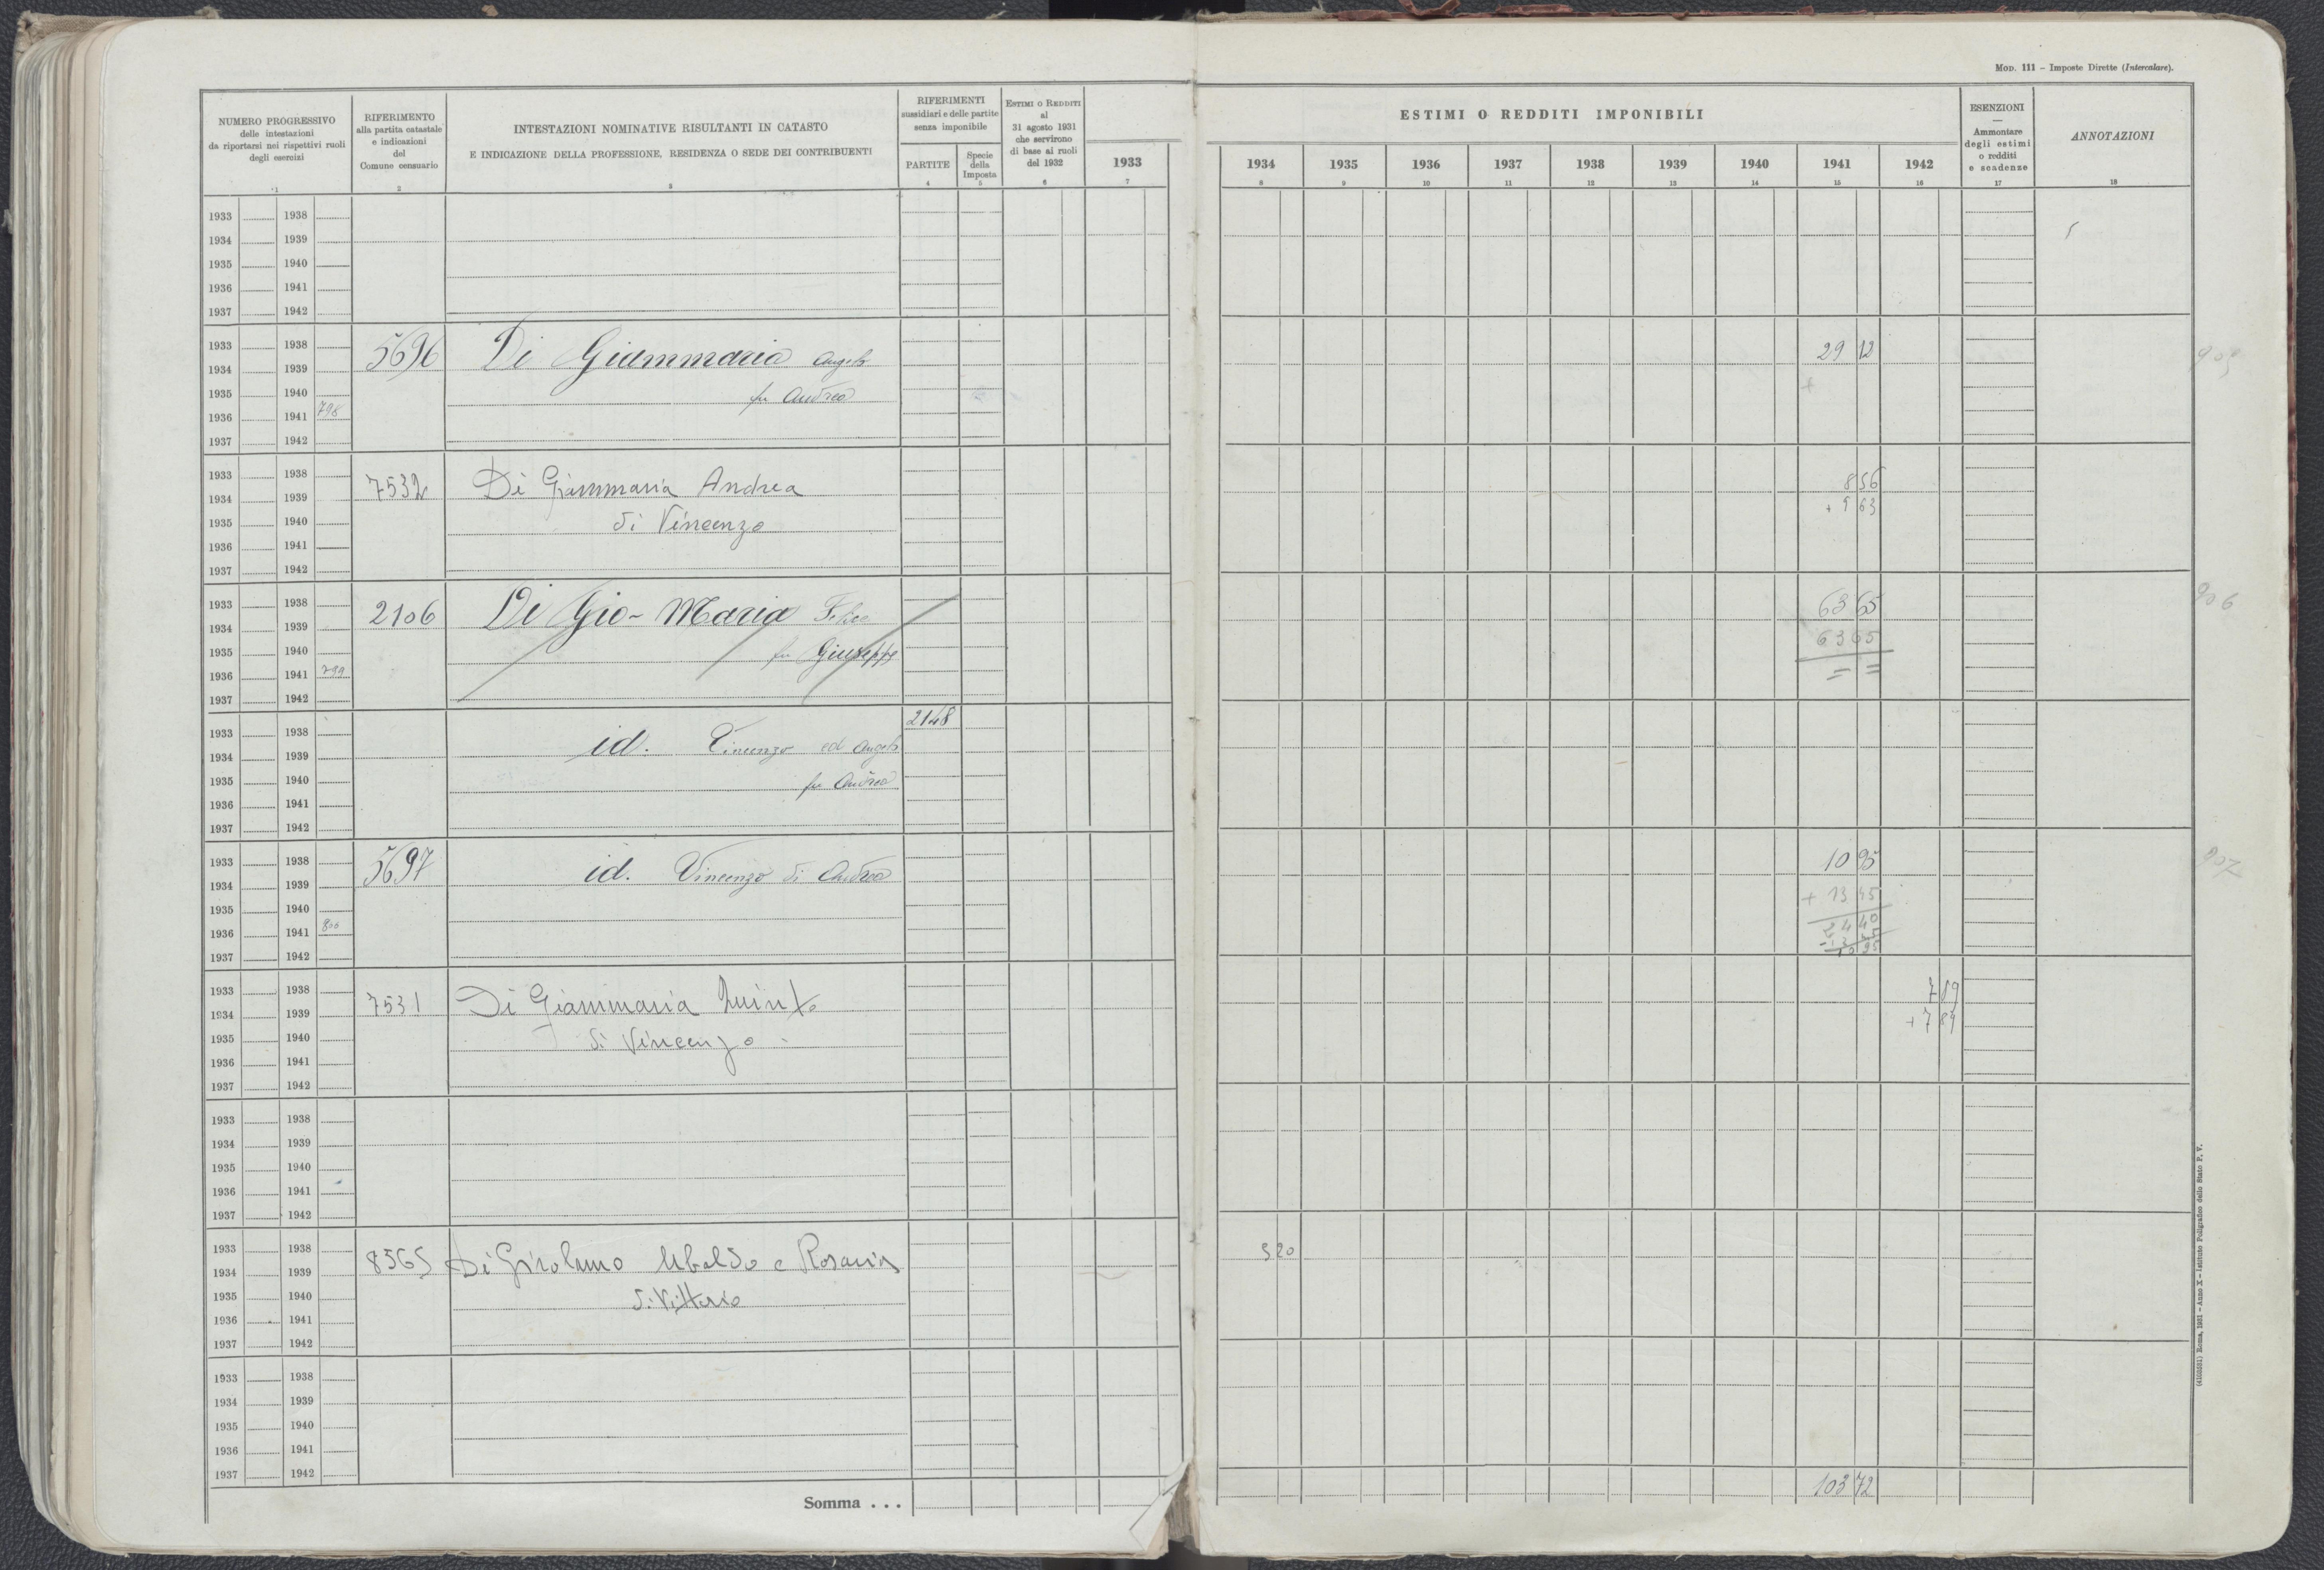 MOD. 111 – Imposte Dirette (Intercalare).
NUMERO PROGRESSIVO
delle intestazioni
da riportarsi nei rispettivi ruoli
degli esercizi
1
RIFERIMENTO
alla partita catastale
e indicazioni
del
Comune censuario
2
INTESTAZIONI NOMINATIVE RISULTANTI IN CATASTO
E INDICAZIONE DELLA PROFESSIONE, RESIDENZA O SEDE DEI CONTRIBUENTI
3
RIFERIMENTI
sussidiari e delle partite
senza imponibile
PARTITE
4
Specie
della
Imposta
5
ESTIMI O REDDITI
al
31 agosto 1931
che servirono
di base ai ruoli
del 1932
6
ESTIMI O REDDITI IMPONIBILI
1933 1934 1935 1936 1937 1938 1939 1940 1941 1942
7 8 9 10 11 12 13 14 15 16
ESENZIONI
—
Ammontare
degli estimi
o redditi
e scadenze
17
ANNOTAZIONI
18
1933 1938
1934 1939
1935 1940
1936 1941
1937 1942
1933 1938
5696 Di Giammaria Angelo 29 12
1934 1939
1935 1940
fu Andrea
1936 1941 798
1937 1942
1933 1938
7532 Di Giammaria Andrea 8 56
1934 1939
1935 1940
di Vincenzo
1936 1941
1937 1942
1933 1938
2106 Di Gio- Maria Felice 63 65 906
1934 1939
63 65
1935 1940
fu Giuseppe
= =
1936 1941 799
1937 1942
2148
1933 1938
id. Vincenzo ed Angelo
1934 1939
1935 1940
fu Andrea
1936 1941
1937 1942
1933 1938
5697 id. Vincenzo di Andrea 10 95 907
1934 1939
+ 13 45
1935 1940
24 40
1936 1941 800
1937 1942
1933 1938
7531 Di Giammaria Quinto
1934 1939
+ 7 89
1935 1940
di Vincenzo
1936 1941
1937 1942
1933 1938
1934 1939
1935 1940
1936 1941
1937 1942
1933 1938
8565 Di Girolamo Ubaldo e Rosaria 5 20
1934 1939
1935 1940
di Vittorio
1936 1941
1937 1942
1933 1938
1934 1939
1935 1940
1936 1941
1937 1942
Somma . . . 103 72
(4103251) Roma, 1931 – Anno X – Istituto Poligrafico dello Stato P. V.